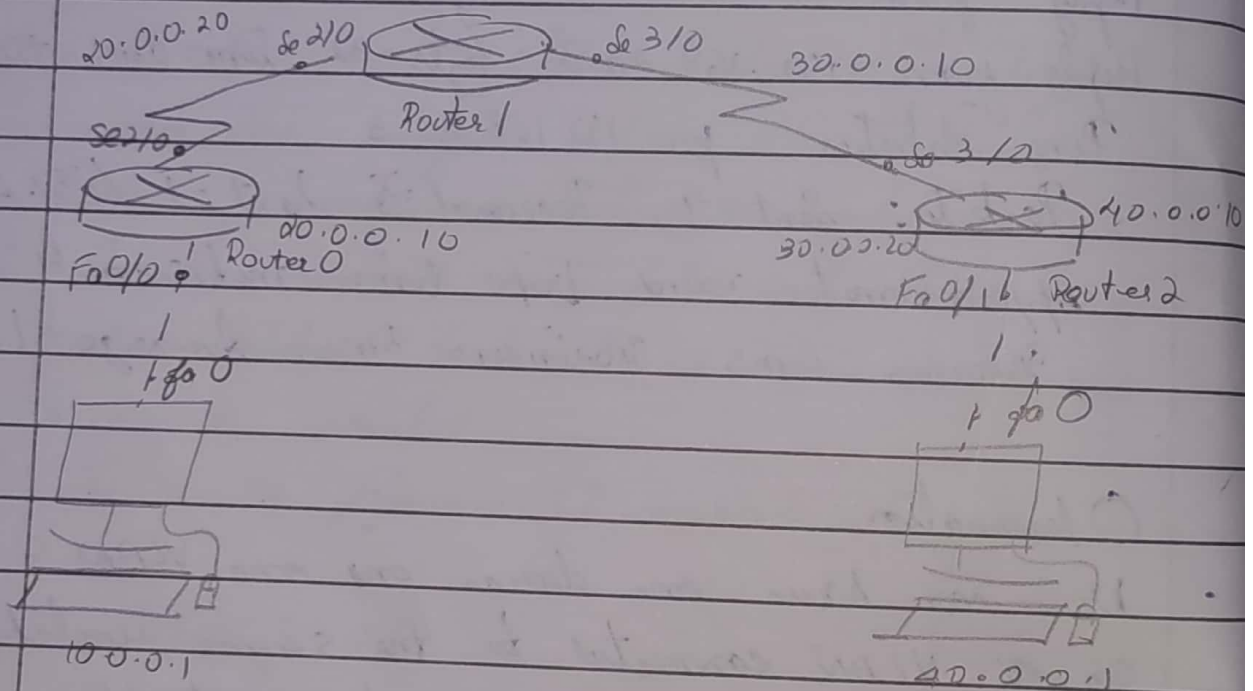 20.0.0.20 Se 2/0 Se 3/0 30.0.0.10
Router 1
Se 2/0 Se 3/0
20.0.0.10 30.0.0.20 40.0.0.10
Fa0/0 Router 0 Fa0/1 Router 2
fa 0 fa 0
10.0.0.1 40.0.0.1